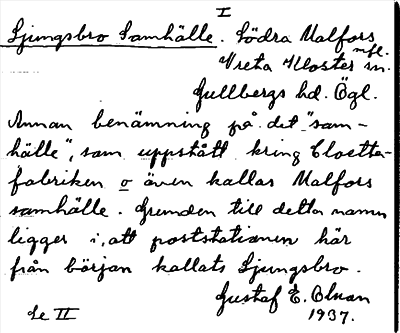 I
Ljungsbro Samhälle. Södra Malfors
mfl.
Vreta Kloster sn.
Gullbergs hd. Ögl.
Annan benämning på det "sam-
hälle", som uppstått kring Cloetta-
fabriken o även kallas Malfors
samhälle. Grunden till detta namn
ligger i, att poststationen här
från början kallats Ljungsbro.
Gustaf E. Olsson
Se II 1937.